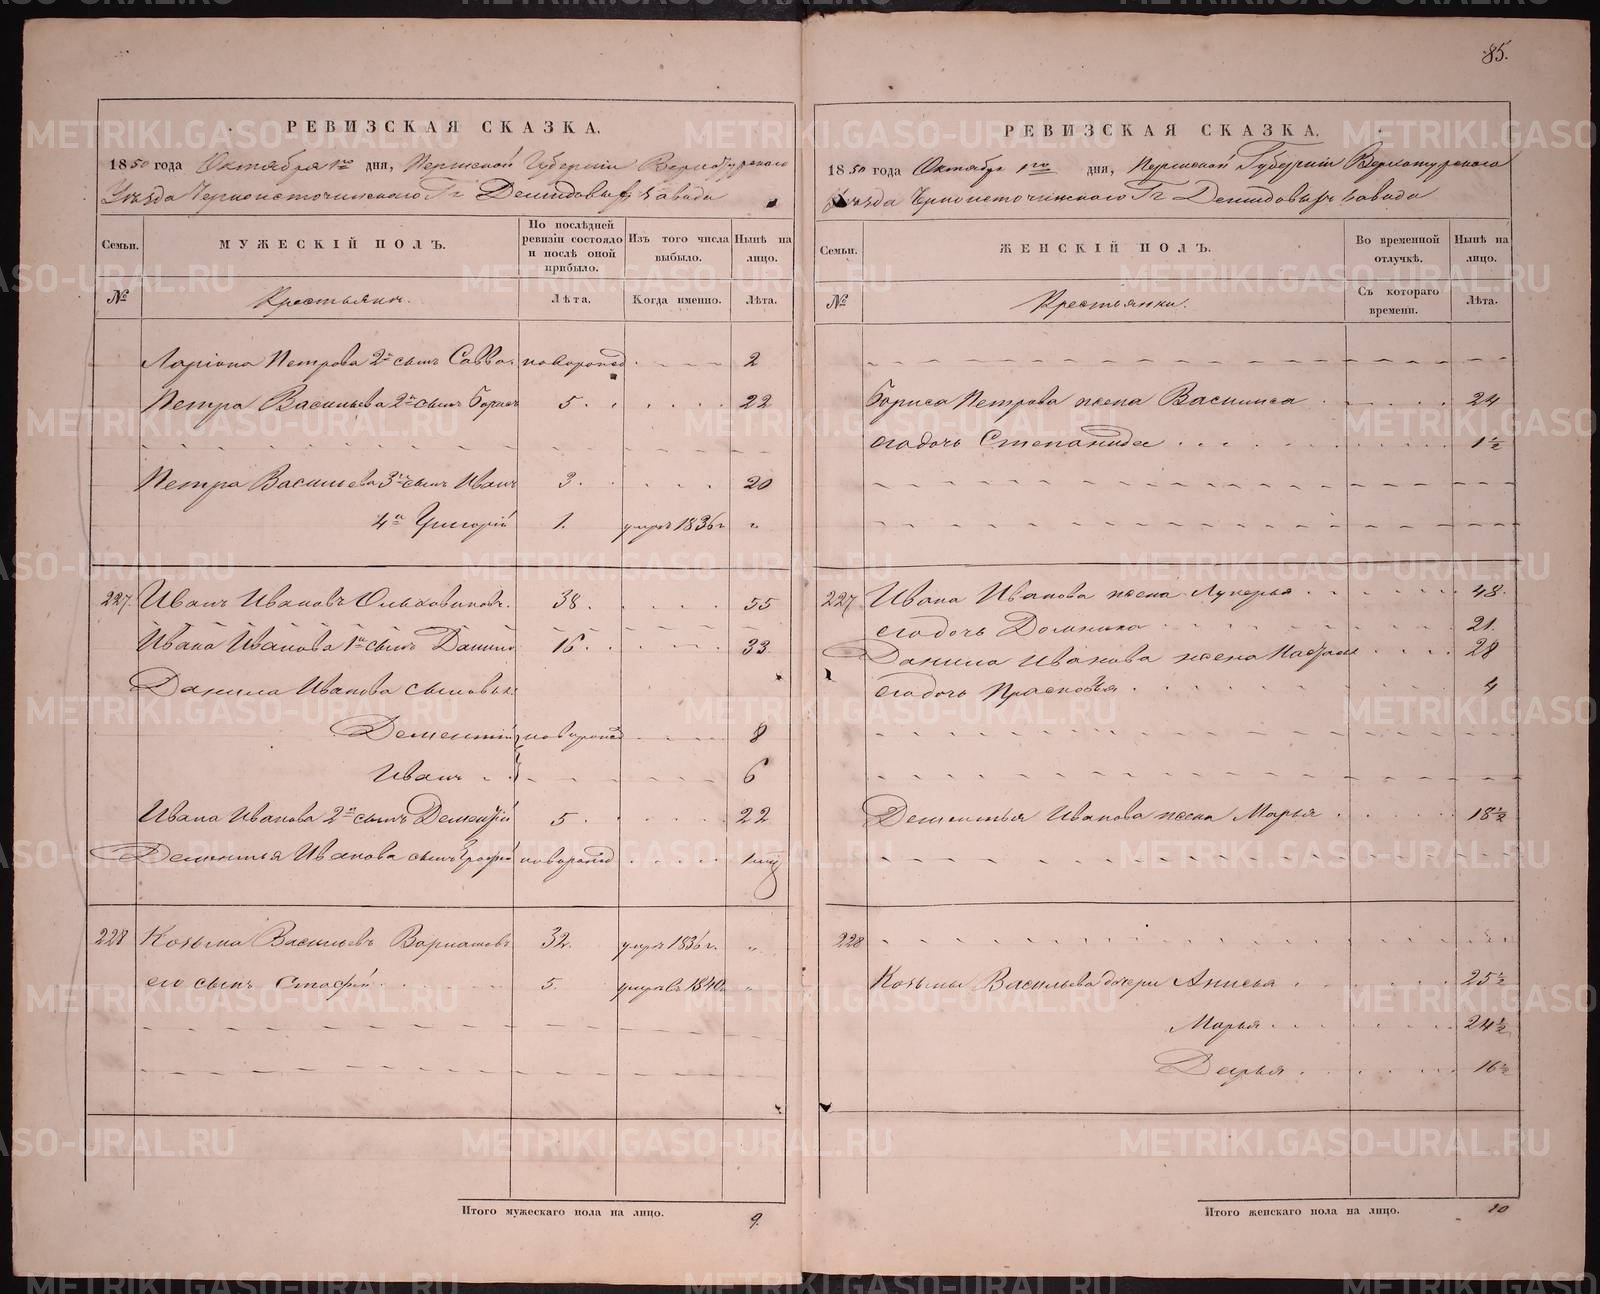 85.
РЕВИЗСКАЯ СКАЗКА.
1850 года Октября 1го дня, Пермской Губернiи Верхотурскаго
Уѣзда Черноисточинскаго Гг Демидовыхъ завода
Семьи. МУЖЕСКIЙ ПОЛЪ. По послѣдней ревизiи состояло и послѣ оной прибыло. Изъ того числа выбыло. Нынѣ на лицо.
№ Крестьяне. Лѣта. Когда именно. Лѣта.
Ларiона Петрова 2й сынъ Савва новорожд 2
Петра Васильева 2й сынъ Борисъ 5. 22
Петра Васильева 3й сынъ Иванъ 3. 20
4й Григорiй 1. умре 1836г "
227. Иванъ Ивановъ Ольховиковъ. 38. 55
Ивана Иванова 1й сынъ Данило 16. 33
Данила Иванова сыновья
Дементiй новорожд 8
Иванъ 6
Ивана Иванова 2й сынъ Дементiй 5. 22
Дементья Иванова сынъ новорожд 1
228 Козьма Васильевъ 32. умре 1836г. "
его сынъ 5. умре въ 1840г "
Итого мужескаго пола на лицо. 9.
РЕВИЗСКАЯ СКАЗКА.
1850 года Октября 1го дня, Пермской Губернiи Верхотурскаго
Уѣзда Черноисточинскаго Гг Демидовыхъ завода
Семьи. ЖЕНСКIЙ ПОЛЪ. Во временной отлучкѣ. Нынѣ на лицо.
№ Крестьянки. Съ котораго времени. Лѣта.
Бориса Петрова жена Василиса 24
его дочь Степанида 1½
227 Ивана Иванова жена Лукерья 48.
его дочь Домника 21.
Данила Иванова жена 28
его дочь Прасковья 4
Дементья Иванова жена Марья 18½
228
Козьмы Васильева дочери Анисья 25½
Марья 24½
Дарья 16½
Итого женскаго пола на лицо. 10
METRIKI.GASO-URAL.RU